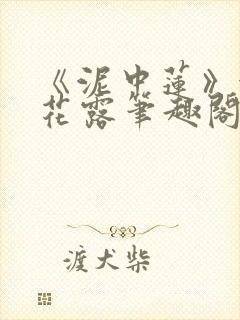 《泥中蓮》
花露筆趣閣
渡犬柴